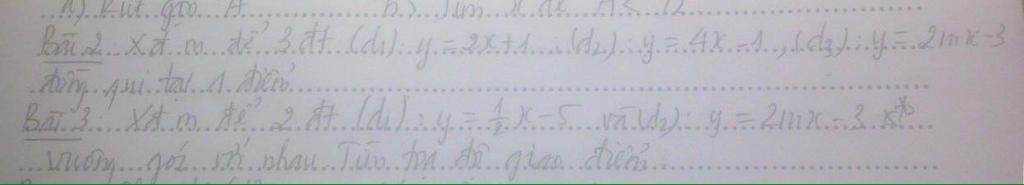 a) Rút gọn A b) Tìm x để A <
Bài 2 Xđ m để 3 đt (d1) y = 2x+1 ; (d2): y = 4x-1, (d3): y = 2mx-3
đồng qui tại 1 điểm
Bài 3: Xđ m để 2 đt (d1): y = 1/2 x - 5 và (d2): y = 2mx - 3
vuông góc với nhau Tìm tọa độ giao điểm